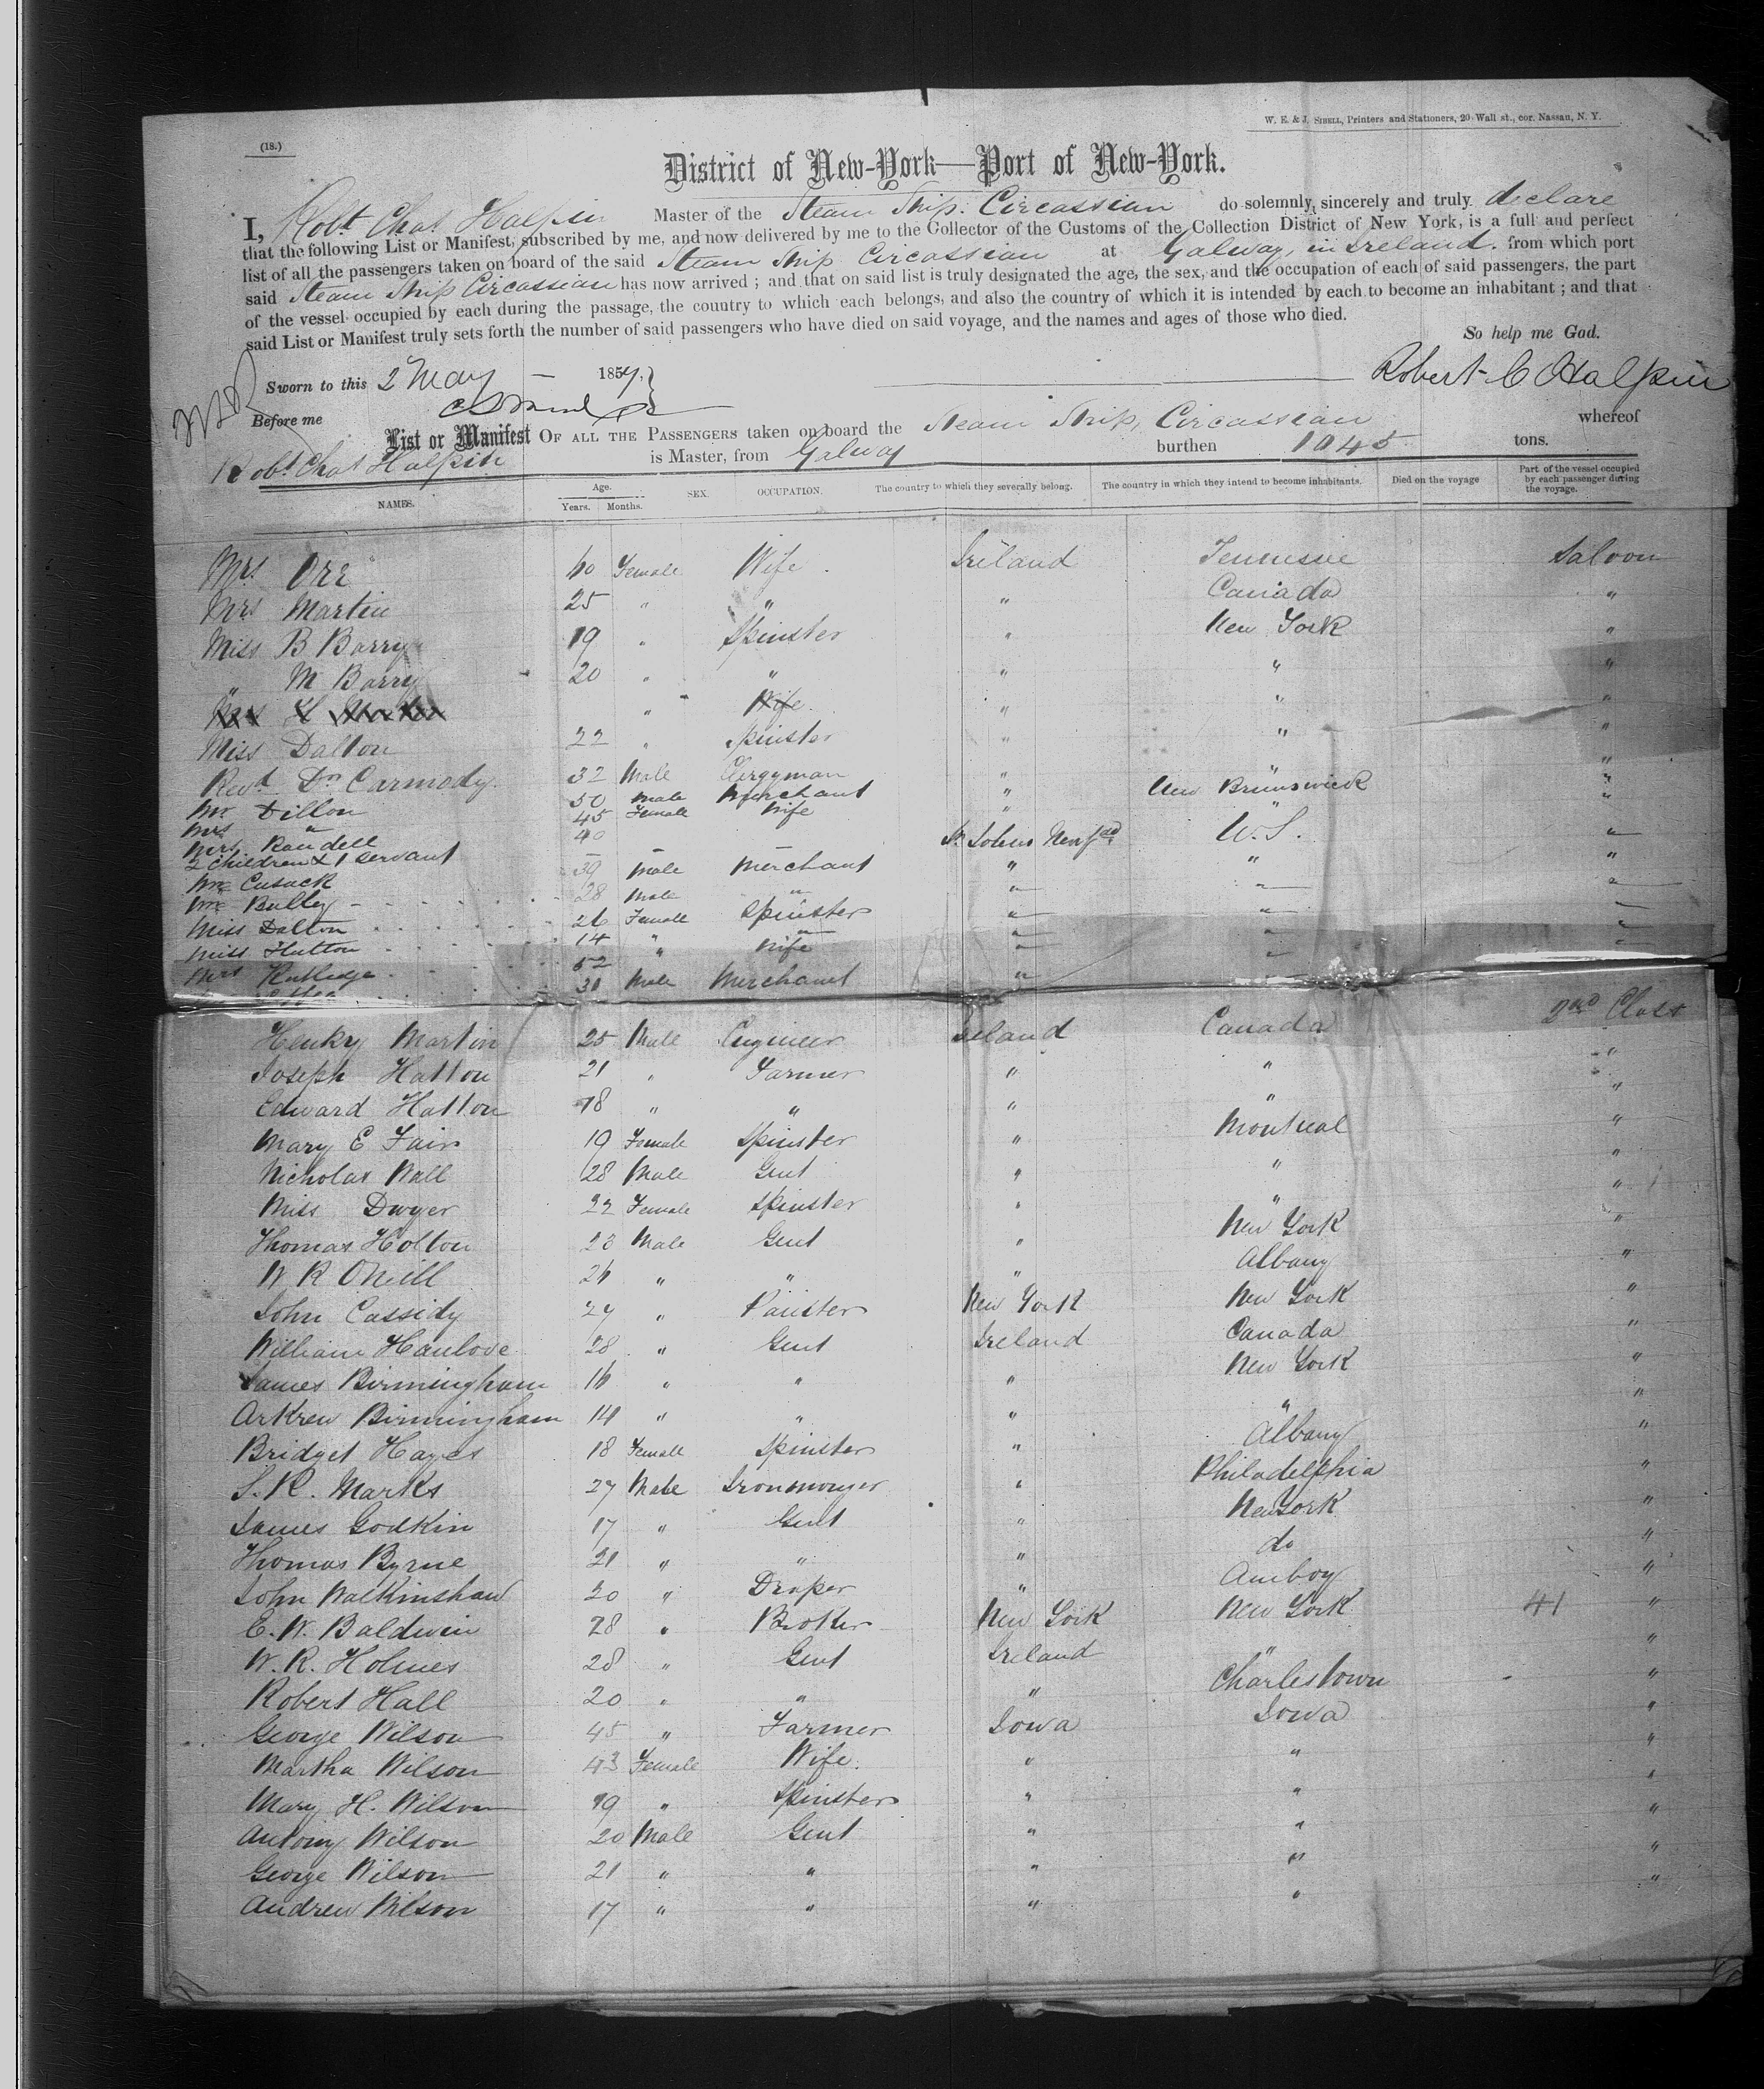 (18.)
W. E. & J. SIBELL, Printers and Stationers, 20 Wall st., cor. Nassau, N. Y.
District of New-York—Port of New-York.
I, Robt Chas Halpin Master of the Steam Ship. Circassian do solemnly, sincerely and truly declare
that the following List or Manifest, subscribed by me, and now delivered by me to the Collector of the Customs of the Collection District of New York, is a full and perfect
list of all the passengers taken on board of the said Steam Ship Circassian at Galway, in Ireland. from which port
said Steam Ship Circassian has now arrived ; and that on said list is truly designated the age, the sex, and the occupation of each of said passengers, the part
of the vessel occupied by each during the passage, the country to which each belongs, and also the country of which it is intended by each to become an inhabitant ; and that
said List or Manifest truly sets forth the number of said passengers who have died on said voyage, and the names and ages of those who died.
So help me God.
Sworn to this 2 May 1859. Robert C Halpin
Before me
List or Manifest OF ALL THE PASSENGERS taken on board the Steam Ship, Circassian whereof
Robt Chas Halpin is Master, from Galway burthen tons.
NAMES. Age. Years. Months. SEX. OCCUPATION. The country to which they severally belong. The country in which they intend to become inhabitants. Died on the voyage Part of the vessel occupied by each passenger during the voyage.
Mrs. Orr 60 Female Wife Ireland Tennessie Saloon
Mrs Martin 25 " " " Canada "
Miss B Barry 19 " Spinster " New York "
" M Barry 20 " " " " "
" Wife " " "
Miss Dalton 22 " Spinster " " "
Revd. Dn Carmody 32 Male Clergyman " " "
Mr Dillon 50 Male Merchant " New Brunswick "
Mrs " 45 Female Wife " " "
Mrs Raudell 40 St. Johns Newfd. U.S.
2 children & 1 servant
Mr Cusack 39 Male Merchant " " "
Mr Bulley 28 Male " " " "
Miss Dalton 26 Female Spinster " " "
Miss Hutton 14 " " " " "
Mrs Rutledge 52 " Wife " " "
31 Male Merchant " "
Henry Martin 25 Male Engineer Ireland Canada 2nd Class
Joseph Hatton 21 " Farmer " " "
Edward Hatton 18 " " " " "
Mary E Fair 19 Female Spinster " Montreal "
Nicholas Wall 28 Male Gent " " "
Miss Dwyer 22 Female Spinster " " "
Thomas Holton 23 Male Gent " New York "
W R ONeill 26 " " " Albany "
John Cassidy 27 " Painter New York New York "
William Hanlove 28 " Gent Ireland Canada "
James Birmingham 16 " " " New York "
Arkrew Birmingham 14 " " " " "
Bridget Hayes 18 Female Spinster " Albany "
S. R. Marks 27 Male Ironmonger " Philadelphia "
James Godkin 17 " Gent " New York "
Thomas Byrne 21 " " " do "
John Walkinshaw 20 " Draper " Amboy "
E. W. Baldwin 28 " Broker New York New York 41 "
W. R. Holmes 28 " Gent Ireland " "
Robert Hall 20 " " " Charlestown "
George Wilson 45 " Farmer Iowa Iowa "
Martha Wilson 43 Female Wife. " " "
Mary H. Wilson 19 " Spinster " " "
Antony Wilson 20 Male Gent " " "
George Wilson 21 " " " " "
Andrew Wilson 17 " " " " "